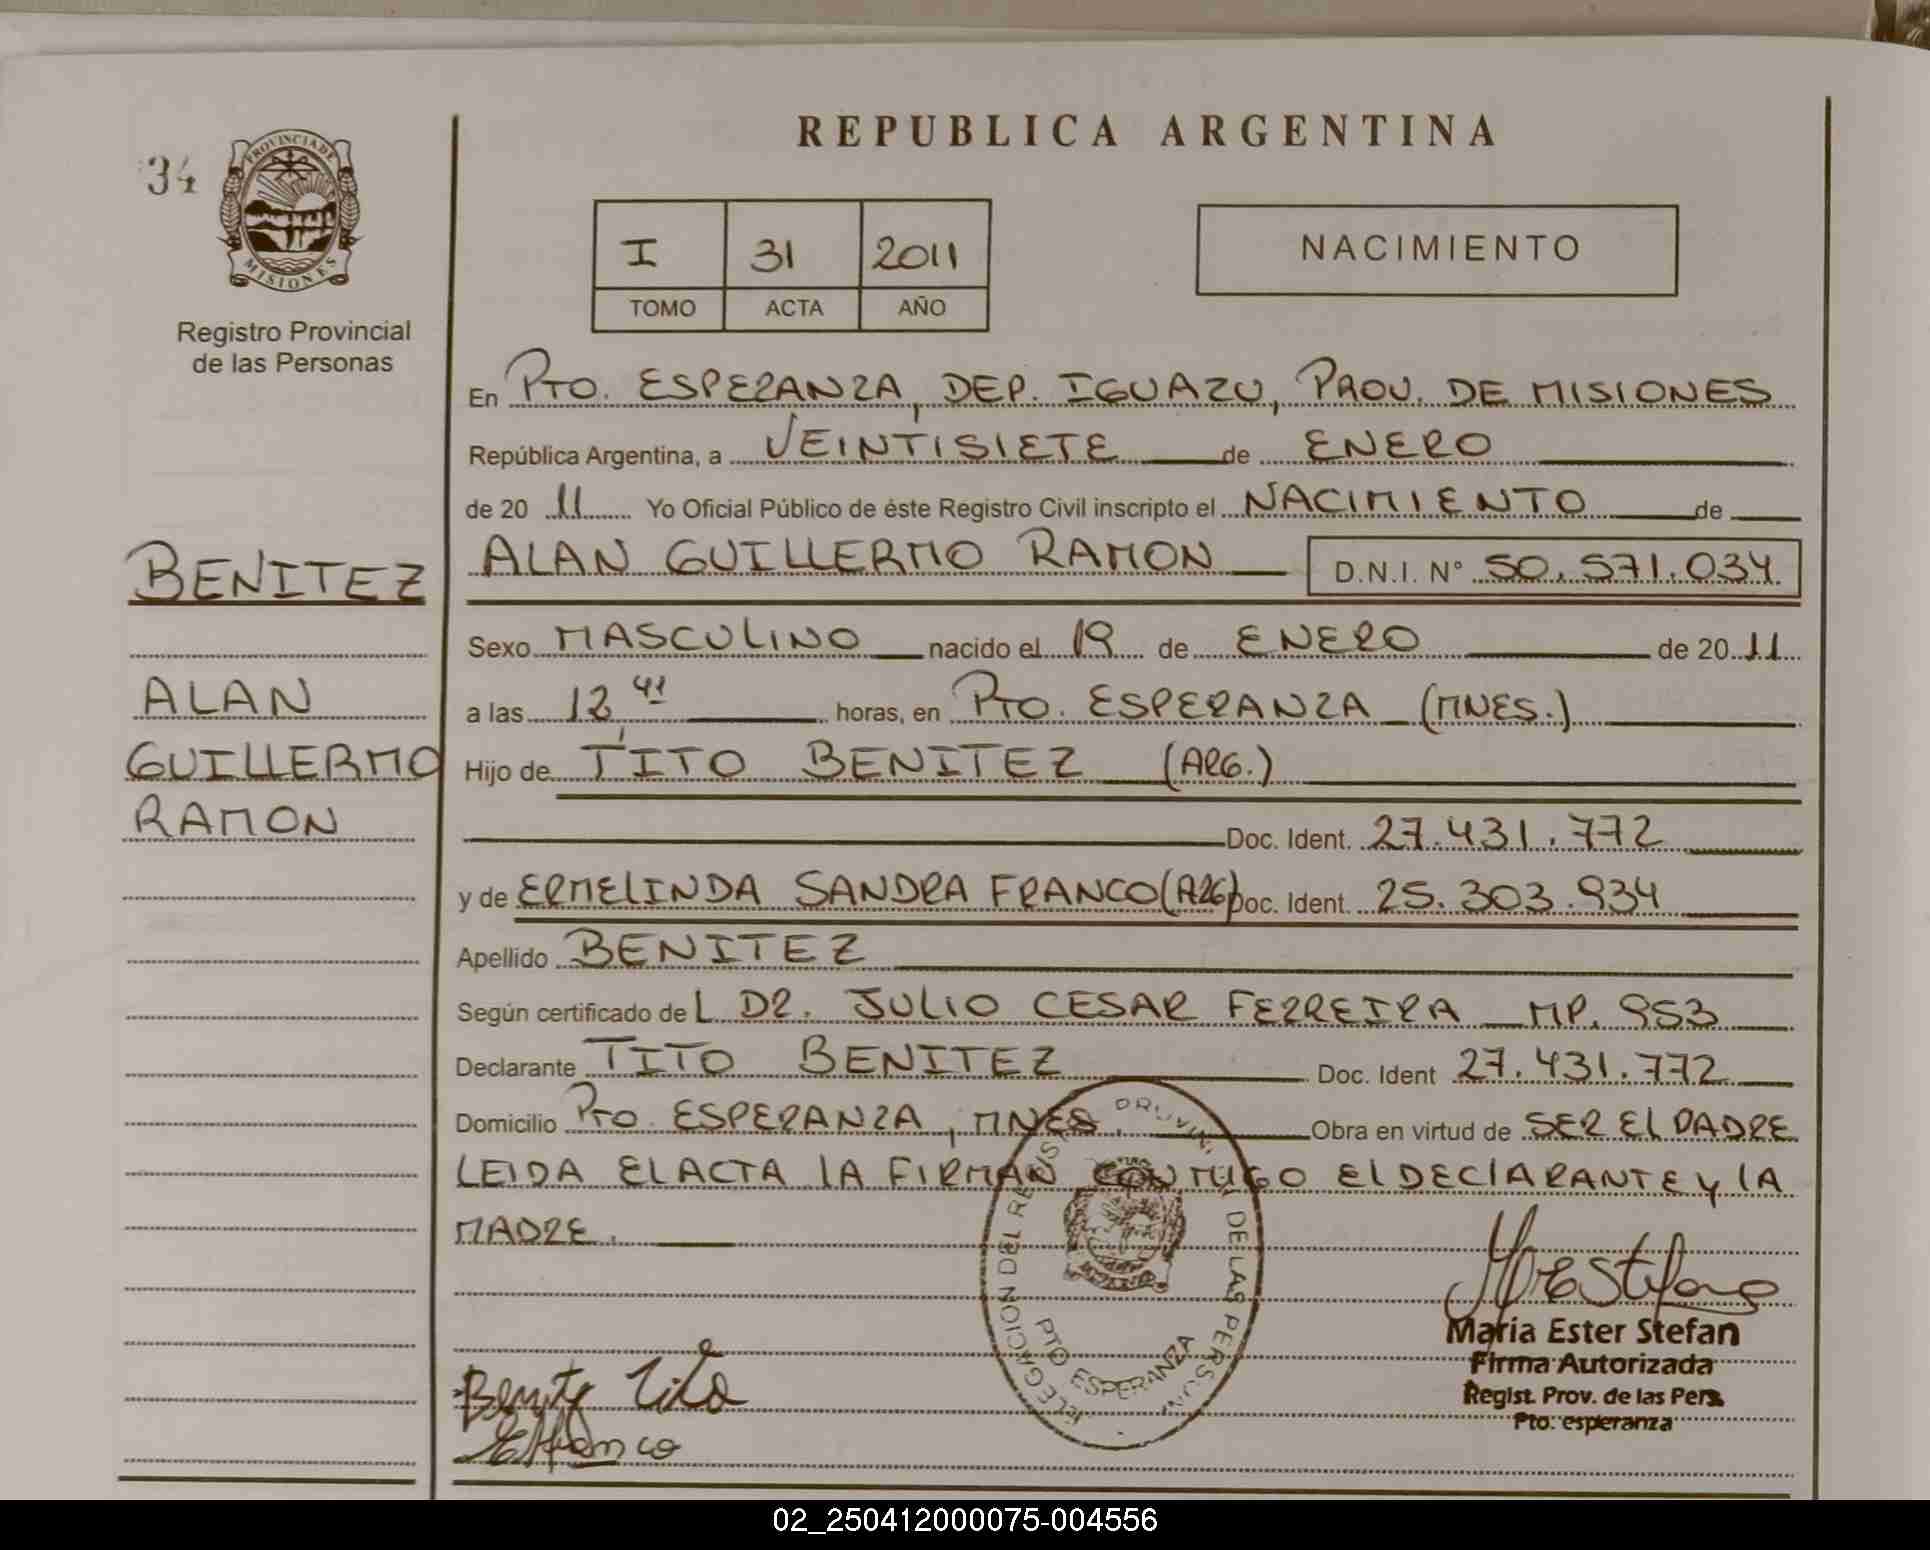 REPUBLICA ARGENTINA
34
PROVINCIA DE
MISIONES
Registro Provincial
de las Personas
I 31 2011
TOMO ACTA AÑO
NACIMIENTO
En PTO. ESPERANZA, DEP. IGUAZU, PROV. DE MISIONES
República Argentina, a VEINTISIETE de ENERO
de 20 11 Yo Oficial Público de éste Registro Civil inscripto el NACIMIENTO de
ALAN GUILLERMO RAMON D.N.I. N° 50.571.034
BENITEZ
ALAN
GUILLERMO
RAMON
Sexo MASCULINO nacido el 19 de ENERO de 20 11
a las 12 41 horas, en PTO. ESPERANZA (MNES.)
Hijo de TITO BENITEZ (ARG.)
Doc. Ident. 27.431.772
y de ERMELINDA SANDRA FRANCO (ARG) Doc. Ident. 25.303.934
Apellido BENITEZ
Según certificado de L DR. JULIO CESAR FERREIRA MP. 953
Declarante TITO BENITEZ Doc. Ident 27.431.772
Domicilio PTO. ESPERANZA, MNES. Obra en virtud de SER EL PADRE
LEIDA EL ACTA LA FIRMAN CONMIGO EL DECLARANTE Y LA
MADRE.
DELEGACION DEL REGISTRO PROVIN. DE LAS PERSON
PTO ESPERANZA
Maria Ester Stefan
Firma Autorizada
Regist. Prov. de las Pers.
Pto. esperanza
Benitez Tito
E Franco
02_250412000075-004556